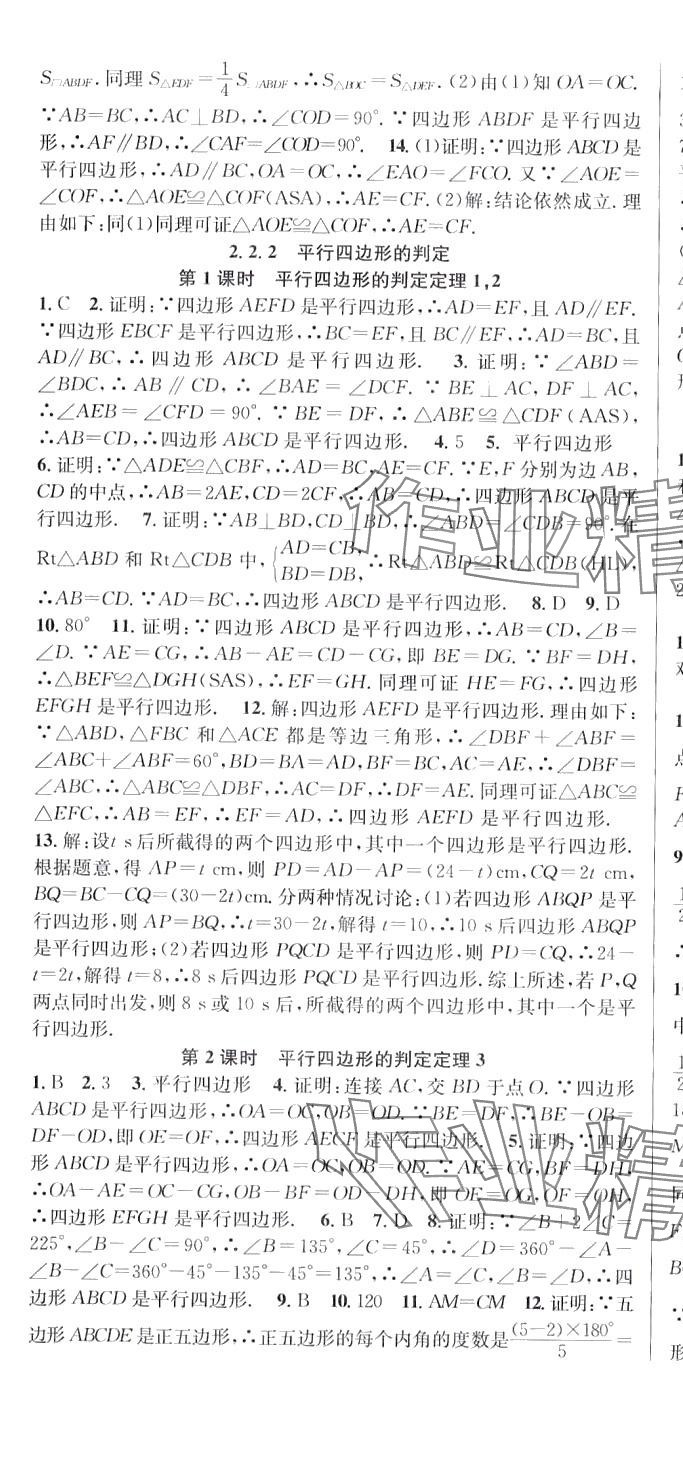 S▱ABDF. 同理 S△EDF=1/4 S▱ABDF,∴S△BOC=S△DEF. (2)由(1)知 OA=OC.
∵AB=BC,∴AC⊥BD,∴∠COD=90°. ∵四边形 ABDF 是平行四边
形,∴AF∥BD,∴∠CAF=∠COD=90°. 14. (1)证明:∵四边形 ABCD 是
平行四边形,∴AD∥BC,OA=OC,∴∠EAO=∠FCO. 又∵∠AOE=
∠COF,∴△AOE≌△COF(ASA),∴AE=CF. (2)解:结论依然成立. 理
由如下:同(1)同理可证△AOE≌△COF,∴AE=CF.
2.2.2 平行四边形的判定
第 1 课时 平行四边形的判定定理 1,2
1. C 2. 证明:∵四边形 AEFD 是平行四边形,∴AD=EF,且 AD∥EF.
∵四边形 EBCF 是平行四边形,∴BC=EF,且 BC∥EF,∴AD=BC,且
AD∥BC,∴四边形 ABCD 是平行四边形. 3. 证明:∵∠ABD=
∠BDC,∴AB∥CD,∴∠BAE=∠DCF. ∵BE⊥AC,DF⊥AC,
∴∠AEB=∠CFD=90°. ∵BE=DF,∴△ABE≌△CDF(AAS),
∴AB=CD,∴四边形 ABCD 是平行四边形. 4. 5 5. 平行四边形
6. 证明:∵△ADE≌△CBF,∴AD=BC,AE=CF. ∵E,F 分别为边 AB,
CD 的中点,∴AB=2AE,CD=2CF,∴AB=CD,∴四边形 ABCD 是平
行四边形. 7. 证明:∵AB⊥BD,CD⊥BD,∴∠ABD=∠CDB=90°. 在
Rt△ABD 和 Rt△CDB 中,{AD=CB, BD=DB,∴Rt△ABD≌Rt△CDB(HL),
∴AB=CD. ∵AD=BC,∴四边形 ABCD 是平行四边形. 8. D 9. D
10. 80° 11. 证明:∵四边形 ABCD 是平行四边形,∴AB=CD,∠B=
∠D. ∵AE=CG,∴AB-AE=CD-CG,即 BE=DG. ∵BF=DH,
∴△BEF≌△DGH(SAS),∴EF=GH. 同理可证 HE=FG,∴四边形
EFGH 是平行四边形. 12. 解:四边形 AEFD 是平行四边形. 理由如下:
∵△ABD,△FBC 和△ACE 都是等边三角形,∴∠DBF+∠ABF=
∠ABC+∠ABF=60°,BD=BA=AD,BF=BC,AC=AE,∴∠DBF=
∠ABC,∴△ABC≌△DBF,∴AC=DF,∴DF=AE. 同理可证△ABC≌
△EFC,∴AB=EF,∴EF=AD,∴四边形 AEFD 是平行四边形.
13. 解:设 t s 后所截得的两个四边形中,其中一个四边形是平行四边形.
根据题意,得 AP=t cm,则 PD=AD-AP=(24-t)cm,CQ=2t cm,
BQ=BC-CQ=(30-2t)cm. 分两种情况讨论:(1)若四边形 ABQP 是平
行四边形,则 AP=BQ,∴t=30-2t,解得 t=10,∴10 s 后四边形 ABQP
是平行四边形;(2)若四边形 PQCD 是平行四边形,则 PD=CQ,∴24-
t=2t,解得 t=8,∴8 s 后四边形 PQCD 是平行四边形. 综上所述,若 P,Q
两点同时出发,则 8 s 或 10 s 后,所截得的两个四边形中,其中一个是平
行四边形.
第 2 课时 平行四边形的判定定理 3
1. B 2. 3 3. 平行四边形 4. 证明:连接 AC,交 BD 于点 O. ∵四边形
ABCD 是平行四边形,∴OA=OC,OB=OD. ∵BE=DF,∴BE-OB=
DF-OD,即 OE=OF,∴四边形 AECF 是平行四边形. 5. 证明:∵四边
形 ABCD 是平行四边形,∴OA=OC,OB=OD. ∵AE=CG,BF=DH,
∴OA-AE=OC-CG,OB-BF=OD-DH,即 OE=OG,OF=OH,
∴四边形 EFGH 是平行四边形. 6. B 7. D 8. 证明:∵∠B+2∠C=
225°,∠B-∠C=90°,∴∠B=135°,∠C=45°,∴∠D=360°-∠A-
∠B-∠C=360°-45°-135°-45°=135°,∴∠A=∠C,∠B=∠D,∴四
边形 ABCD 是平行四边形. 9. B 10. 120 11. AM=CM 12. 证明:∵五
边形 ABCDE 是正五边形,∴正五边形的每个内角的度数是(5-2)×180°/5=
作业精
作业精